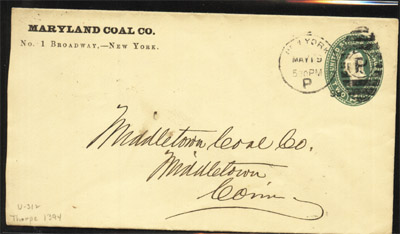 MARYLAND COAL CO.
No. 1 Broadway,—New York.
NEW YORK
MAY 19
5:30PM
P
UNITED STATES
Middletown Coal Co.
Middletown
Conn
U-312
Thorpe 1394